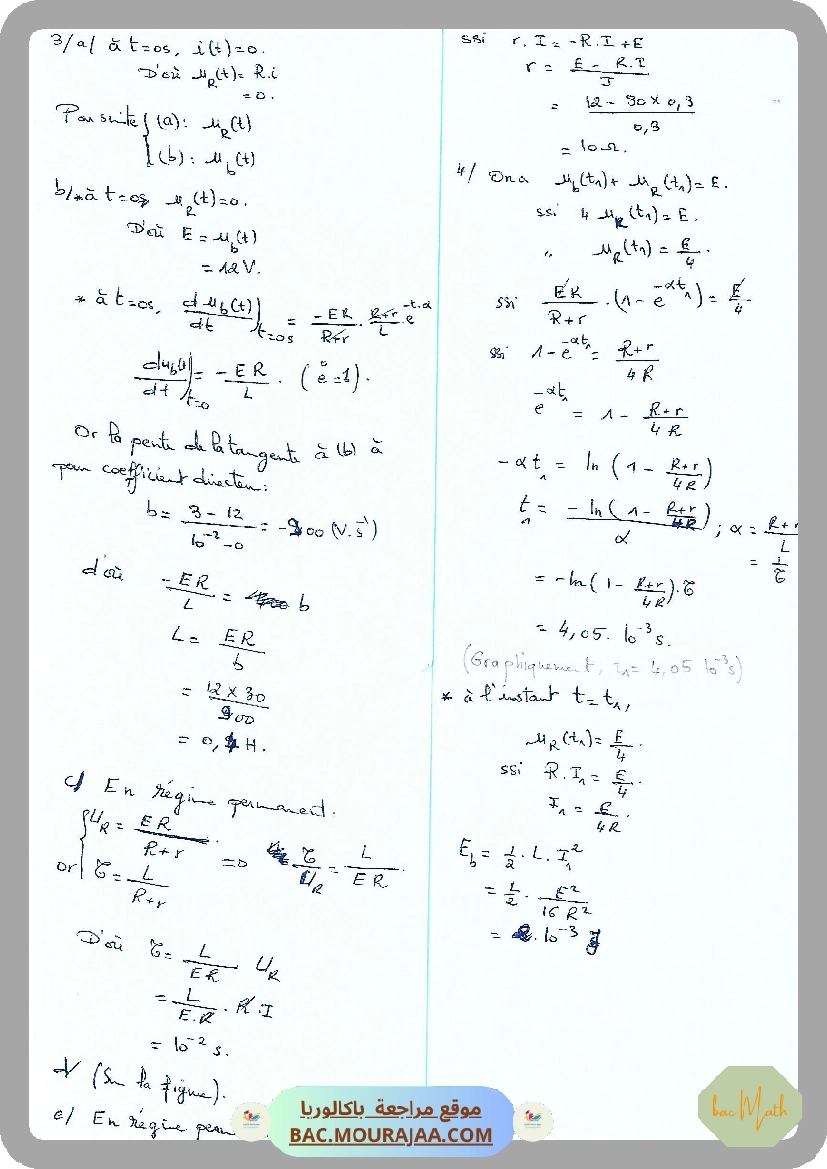 3/a/ à t=0s, i(t)=0.
D'où u_R(t)= R.i
= 0.
Par suite { (a): u_R(t)
(b): u_b(t)
b/* à t=0s, u_R(t)=0.
D'où E = u_b(t)
= 12V.
* à t=0s, du_b(t)/dt)_t=0s = -ER/R+r . R+r/L e^-t.α
du_b(t)/dt)_t=0 = -ER/L . (e^0=1).
Or la pente de la tangente à (b) à
pour coefficient directeur:
b= 3-12/10^-2-0 = -900 (V.s^-1)
d'où -ER/L = b
L = ER/b
= 12 x 30/900
= 0,4 H.
c/ En régime permanent.
{ U_R = ER/R+r
or τ = L/R+r => τ/U_R = L/ER
D'où τ= L/ER U_R
= L/E.R . R.I
= 10^-2 s.
d/ (Sur la figure).
e/ En régime perm
ssi r.I = -R.I +E
r = E - R.I/I
= 12 - 30 x 0,3/0,3
= 10 Ω.
4/ On a u_b(t1)+ u_R(t1)= E.
ssi 4 u_R(t1)= E.
" u_R(t1) = E/4 .
ssi ER/R+r . (1- e^-αt1) = E/4
ssi 1-e^-αt1 = R+r/4R
e^-αt1 = 1 - R+r/4R
-αt1 = ln (1 - R+r/4R)
t1 = -ln(1- R+r/4R)/α ; α = R+r/L
= 1/τ
= -ln(1- R+r/4R).τ
= 4,05. 10^-3 s.
(Graphiquement, t1= 4,05 10^-3 s)
* à l'instant t=t1,
u_R(t1)= E/4 .
ssi R.I1 = E/4 .
I1 = E/4R .
E_b = 1/2 . L . I1^2
= 1/2 . E^2/16R^2
= 2. 10^-3 J
موقع مراجعة باكالوريا
BAC.MOURAJAA.COM
bac Math